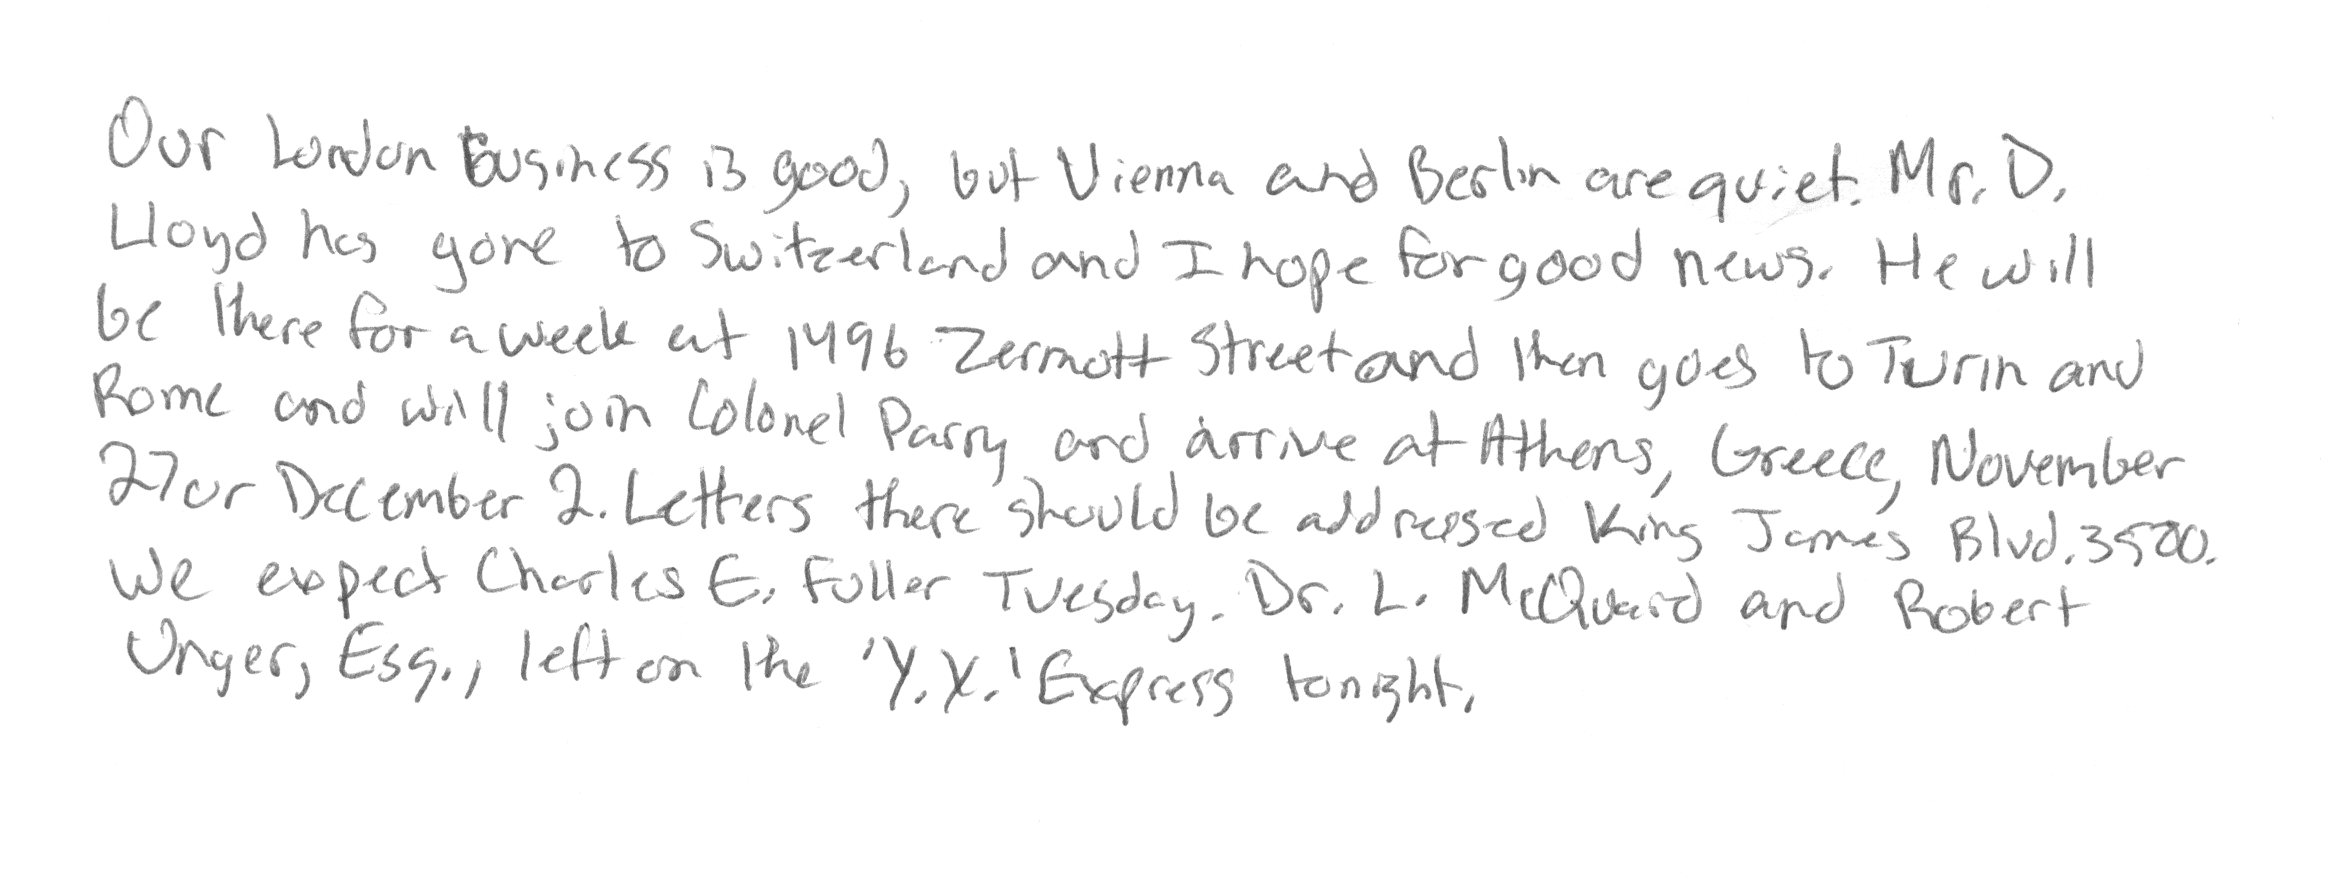 Our London business is good, but Vienna and Berlin are quiet. Mr. D.
Lloyd has gone to Switzerland and I hope for good news. He will
be there for a week at 1496 Zermott Street and then goes to Turin and
Rome and will join Colonel Parry and arrive at Athens, Greece, November
27 or December 2. Letters there should be addressed King James Blvd. 3580.
We expect Charles E. Fuller Tuesday. Dr. L. McQuaid and Robert
Unger, Esq., left on the 'Y.X.' Express tonight.